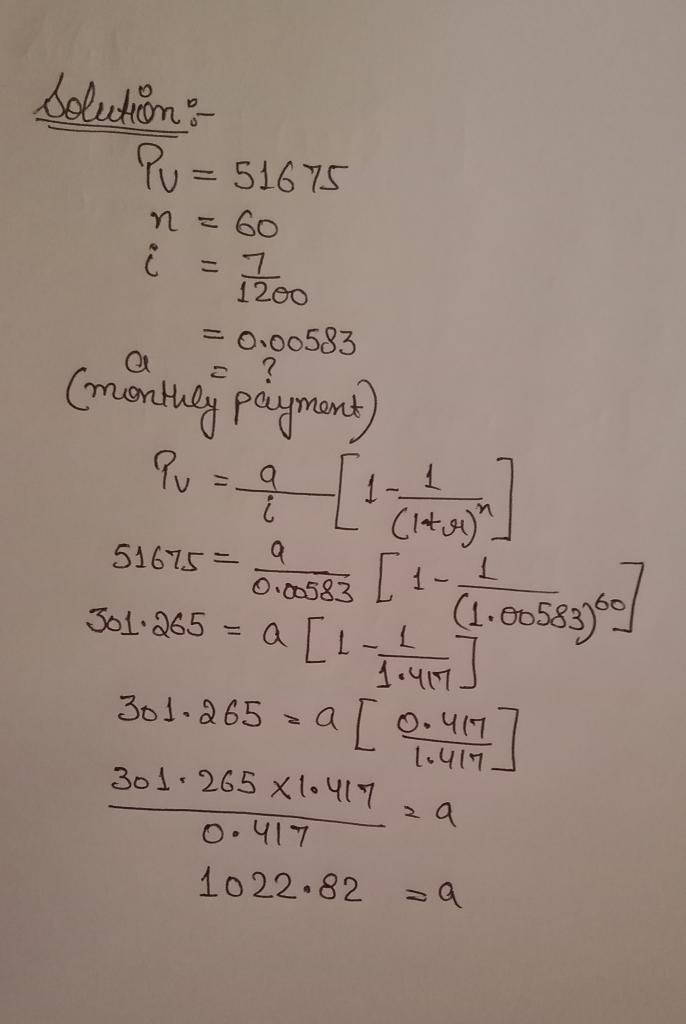 Solution :-
Pv = 51675
n = 60
i = 7/1200
= 0.00583
a = ?
(monthly payment)
Pv = a/i [1 - 1/(1+r)^n]
51675 = a/0.00583 [1 - 1/(1.00583)^60]
301.265 = a [1 - 1/1.417]
301.265 = a [0.417/1.417]
301.265 x 1.417/0.417 = a
1022.82 = a